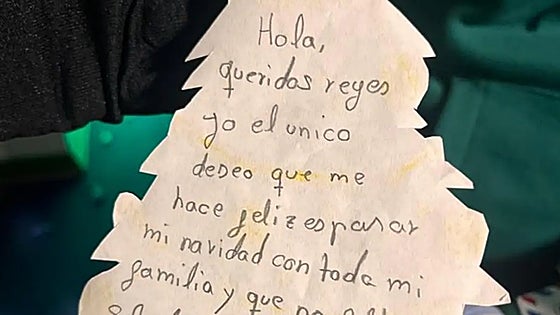 Hola,
queridos reyes
yo el unico
deseo que me
hace feliz es pasar
mi navidad con toda mi
familia y que no